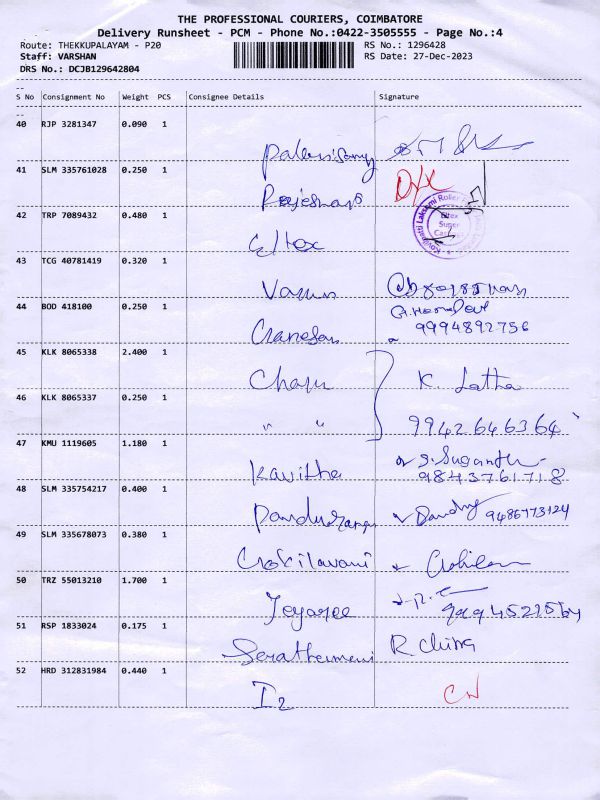 THE PROFESSIONAL COURIERS, COIMBATORE
Delivery Runsheet - PCM - Phone No.:0422-3505555 - Page No.:4
Route: THEKKUPALAYAM - P20 RS No.: 1296428
Staff: VARSHAN RS Date: 27-Dec-2023
DRS No.: DCJB129642804
S No Consignment No Weight PCS Consignee Details Signature
40 RJP 3281347 0.090 1
41 SLM 335761028 0.250 1
42 TRP 7089432 0.480 1
Eltex
Eltex
Super
43 TCG 40781419 0.320 1
Varun
44 BOD 418100 0.250 1
Ganesan
9994892756
45 KLK 8065338 2.400 1
K. Latha
46 KLK 8065337 0.250 1
" "
9942646364
47 KMU 1119605 1.180 1
Kavitha
9843761718
48 SLM 335754217 0.400 1
Pandurangan 9486773124
49 SLM 335678073 0.380 1
Gokilavani
50 TRZ 55013210 1.700 1
Jeyasree
51 RSP 1833024 0.175 1
52 HRD 312831984 0.440 1